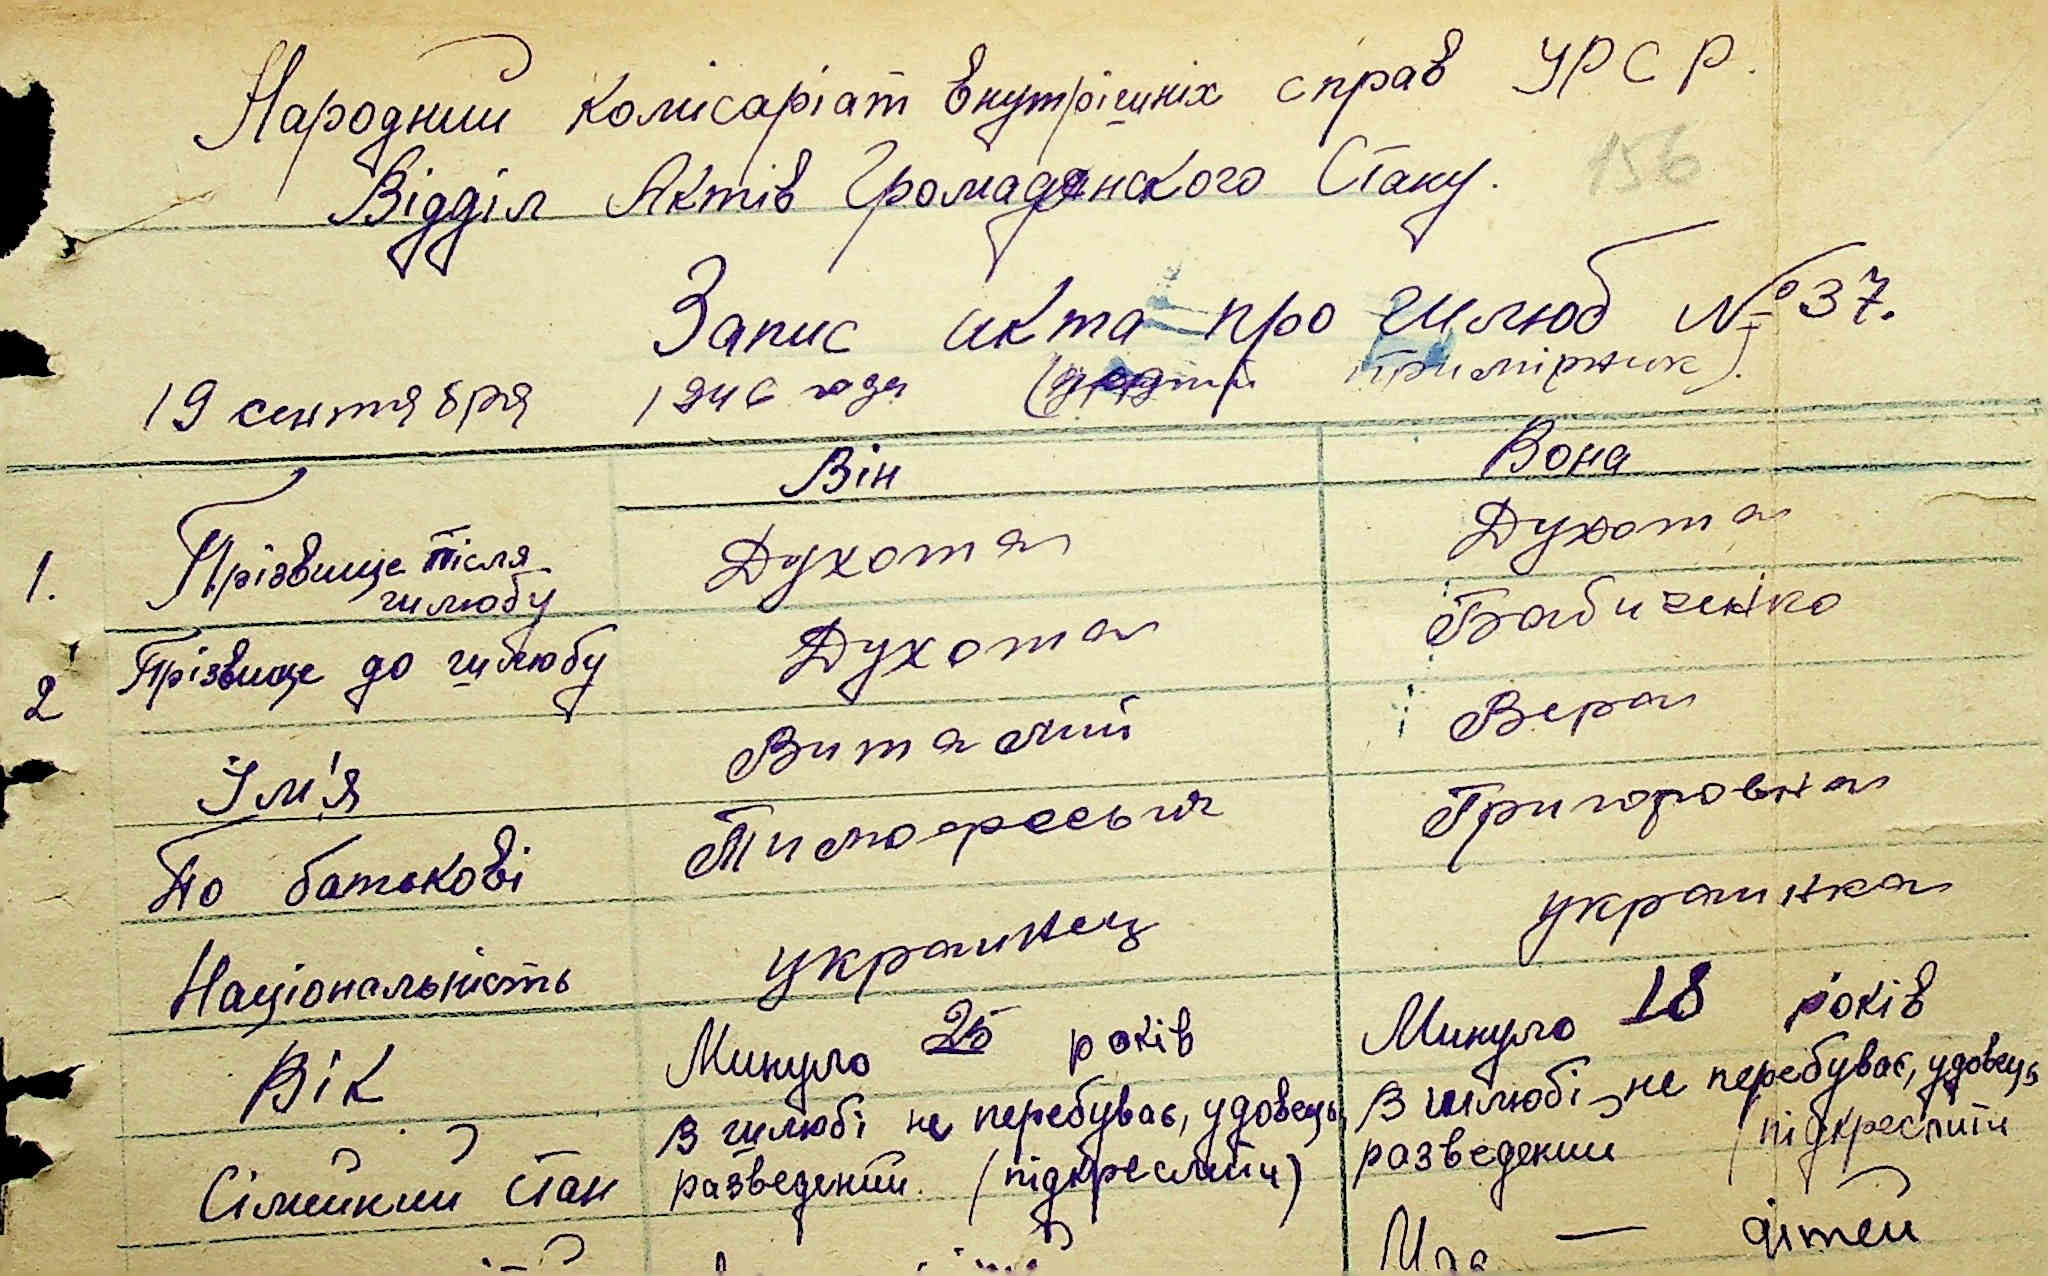 Народний комісаріат внутрішніх справ УРСР.
156
Відділ Актів Громадянского Стану.
Запис акта про шлюб № 37.
19 сентября 1946 года (другий примірник).
Він Вона
1. Прізвище після шлюбу Духота Духота
2 Прізвище до шлюбу Духота Бабиченко
Ім'я Виталий Вера
По батькові Тимофеевич Григоровна
Національність украинец украинка
Вік Минуло 25 років Минуло 18 років
Сімейний стан В шлюбі не перебуває, удовець, разведений. (підкреслити) В шлюбі не перебуває, удовець, разведений (підкреслити
Має — дітей